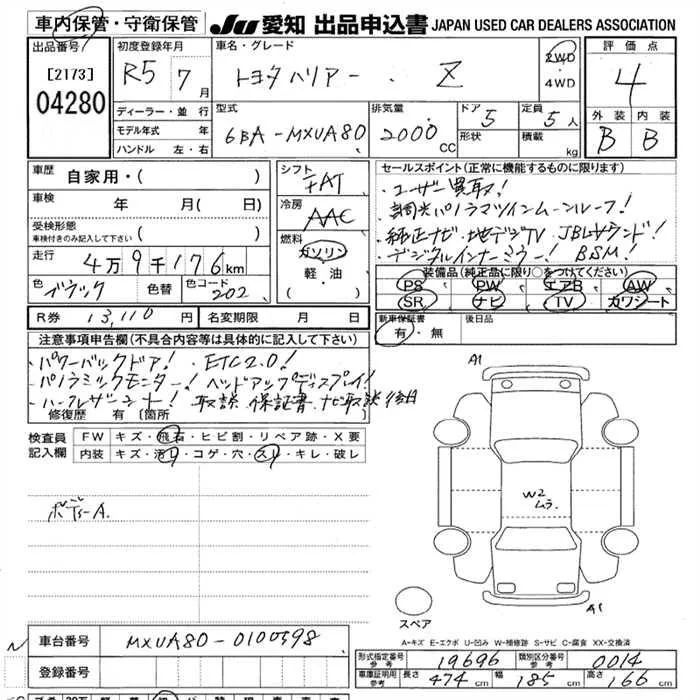 車内保管・守衛保管 JU 愛知 出品申込書 JAPAN USED CAR DEALERS ASSOCIATION
出品番号 初度登録年月 車名・グレード 評価点
[2173] R5 7月 トヨタハリアー . Z 2WD・4WD 4
04280
ディーラー・並行 型式 排気量 ドア 定員 外装 内装
モデル年式 年 6BA-MXUA80 2000cc 5 5人 B B
ハンドル 左・右 形状 積載 kg
車歴 自家用・( ) シフト FAT セールスポイント(正常に機能するものに限ります)
車検 年 月( 日) 冷房 AAC ・ユーザー買取!
受検形態 ( ) ・調光パノラマツインムーンルーフ!
車検付きのみ記入して下さい 燃料 ・純正ナビ・地デジTV JBLサウンド!
走行 4万9千176km ガソリン ・デジタルインナーミラー! BSM!
色 ブラック 色替 色コード 202 軽・油 装備品(純正品に限り○をつけてください)
( ) PS PW エアB AW
R券 13,110円 名変期限 月 日 SR ナビ TV カワシート
注意事項申告欄(不具合内容等は具体的に記入して下さい) 新車保証書 後日品
有・無
・パワーバックドア! ETC2.0!
・パノラミックモニター! ヘッドアップディスプレイ!
・ハーフレザーシート! 取説 保証書 ナビ取説後日
修復歴 有 [箇所
検査員 FW キズ・飛石・ヒビ割・リペア跡・X要
記入欄 内装 キズ・汚れ・コゲ・穴・スレ・キレ・破レ
A1
W2
ムラ
ボデーA.
スペア
A1
A-キズ E-エクボ U-凹み W-補修跡 S-サビ C-腐食 XX-交換済
車台番号 MXUA80-0100598
形式指定番号 参考 19696 類別区分番号 参考 0014
登録番号
車庫証明用 参考 長さ 474cm 幅 185cm 高さ 166cm